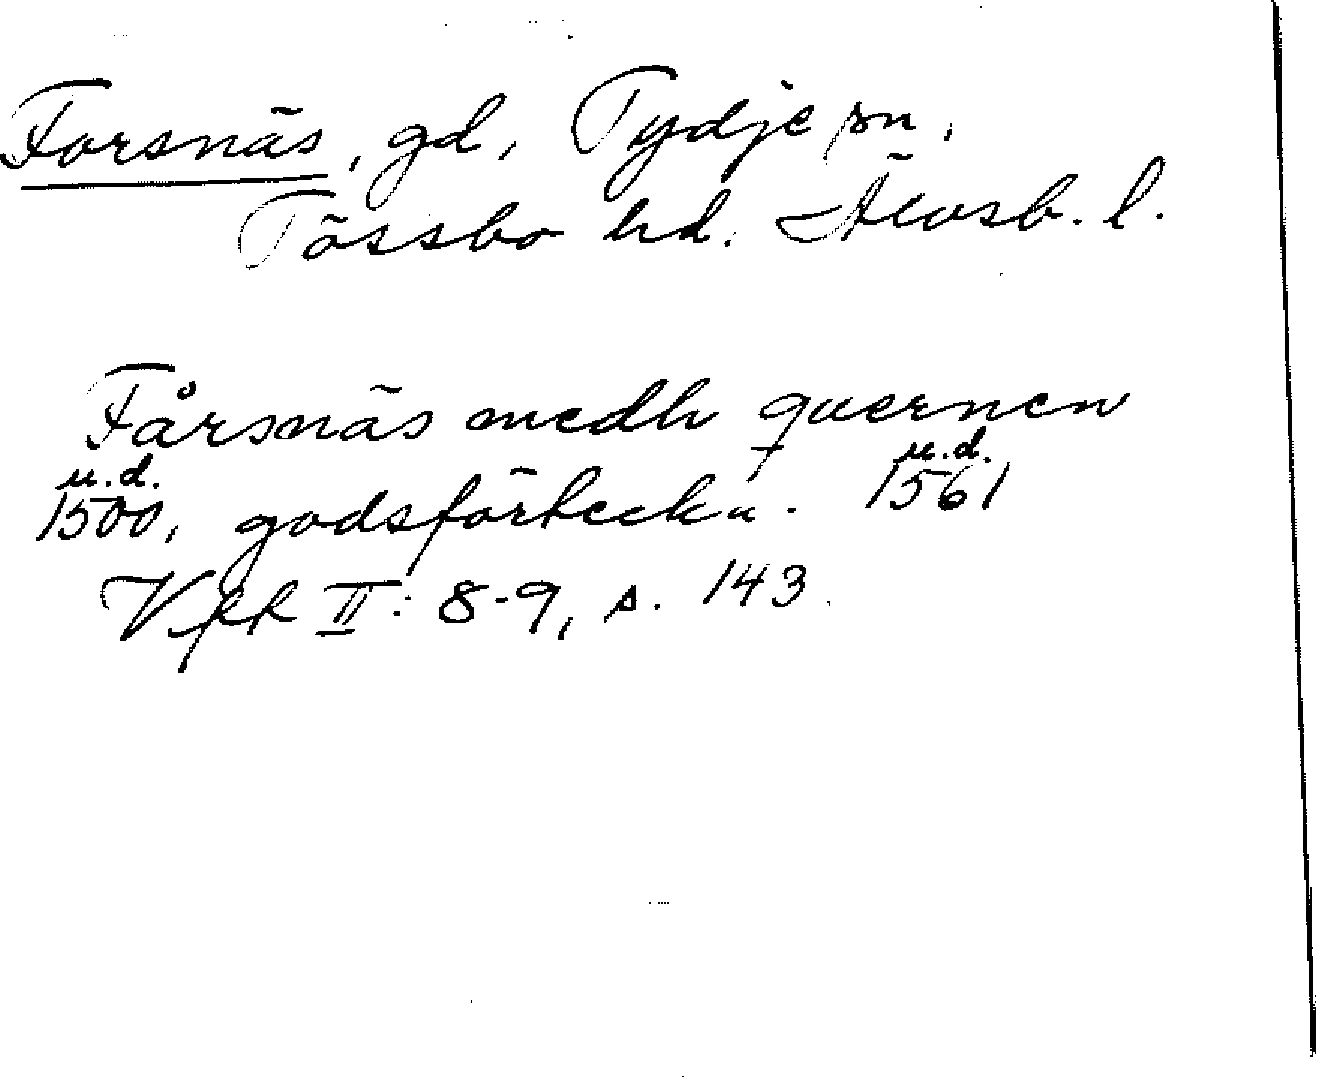 Forsnäs, gd, Tydje sn,
Tössbo hd. Älvsb. l.
Fårsnäs medh quernen
u.d. u.d.
1500, godsförteckn. 1561
Vfft II: 8-9, s. 143.